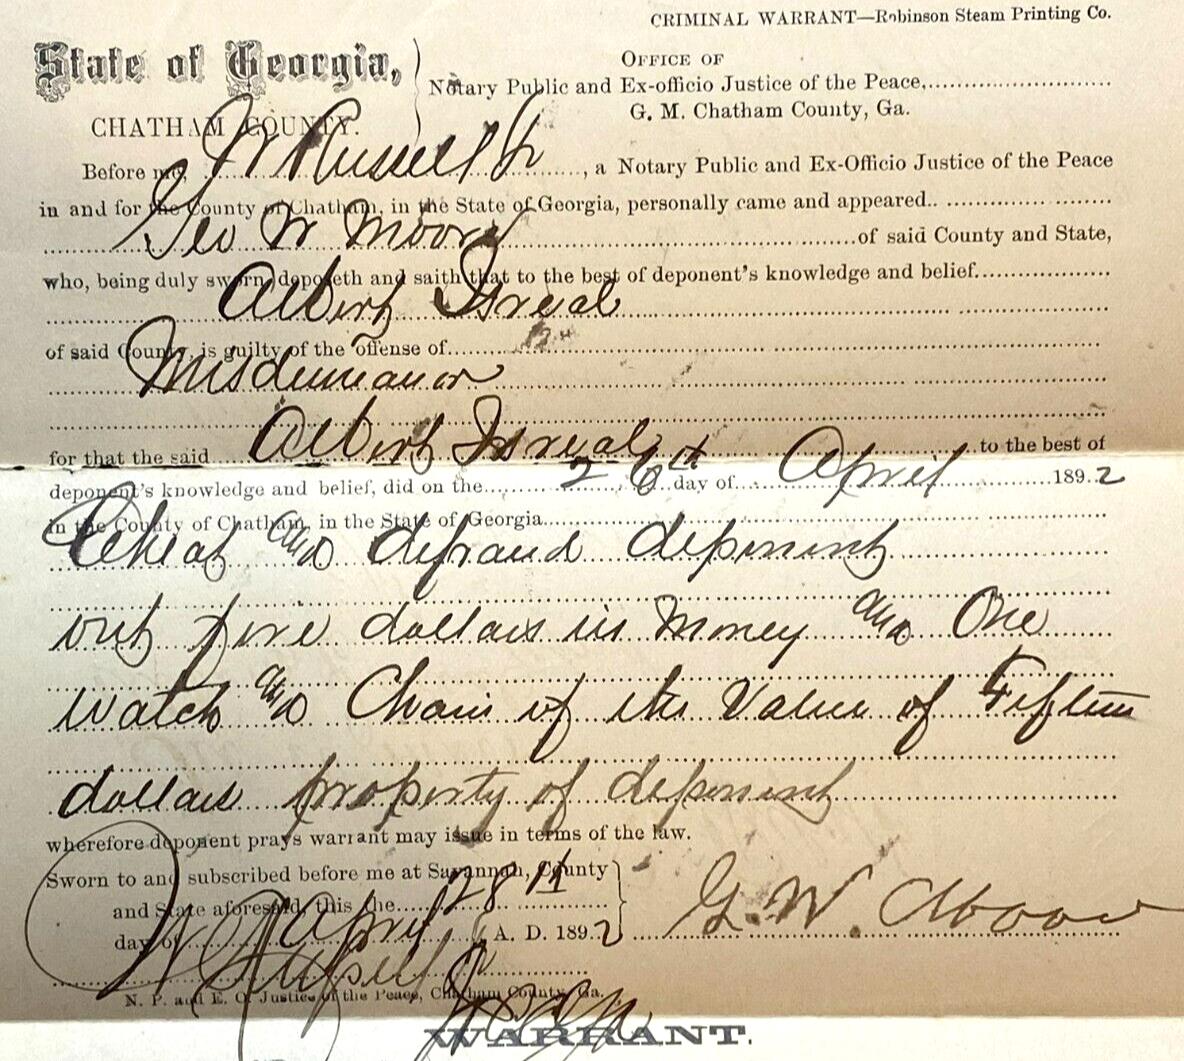 CRIMINAL WARRANT—Robinson Steam Printing Co.
State of Georgia,
CHATHAM COUNTY.
OFFICE OF
Notary Public and Ex-officio Justice of the Peace,
G. M. Chatham County, Ga.
Before me, W Russell Jr, a Notary Public and Ex-Officio Justice of the Peace
in and for the County of Chatham, in the State of Georgia, personally came and appeared
Geo W Moore of said County and State,
who, being duly sworn, deposeth and saith that to the best of deponent's knowledge and belief
Albert Isreal
of said County, is guilty of the offense of
Misdemeanor
for that the said Albert Isreal to the best of
deponent's knowledge and belief, did on the 26th day of April 1892
in the County of Chatham, in the State of Georgia
Cheat and defraud deponent
out five dollars in Money and One
Watch and Chain of the Value of Fifteen
dollars property of deponent
wherefore deponent prays warrant may issue in terms of the law.
Sworn to and subscribed before me at Savannah, County
and State aforesaid, this the 28th
day of April A. D. 1892
G. W. Moore
W Russell Jr
N. P. and E. O. Justice of the Peace, Chatham County, Ga.
WARRANT.